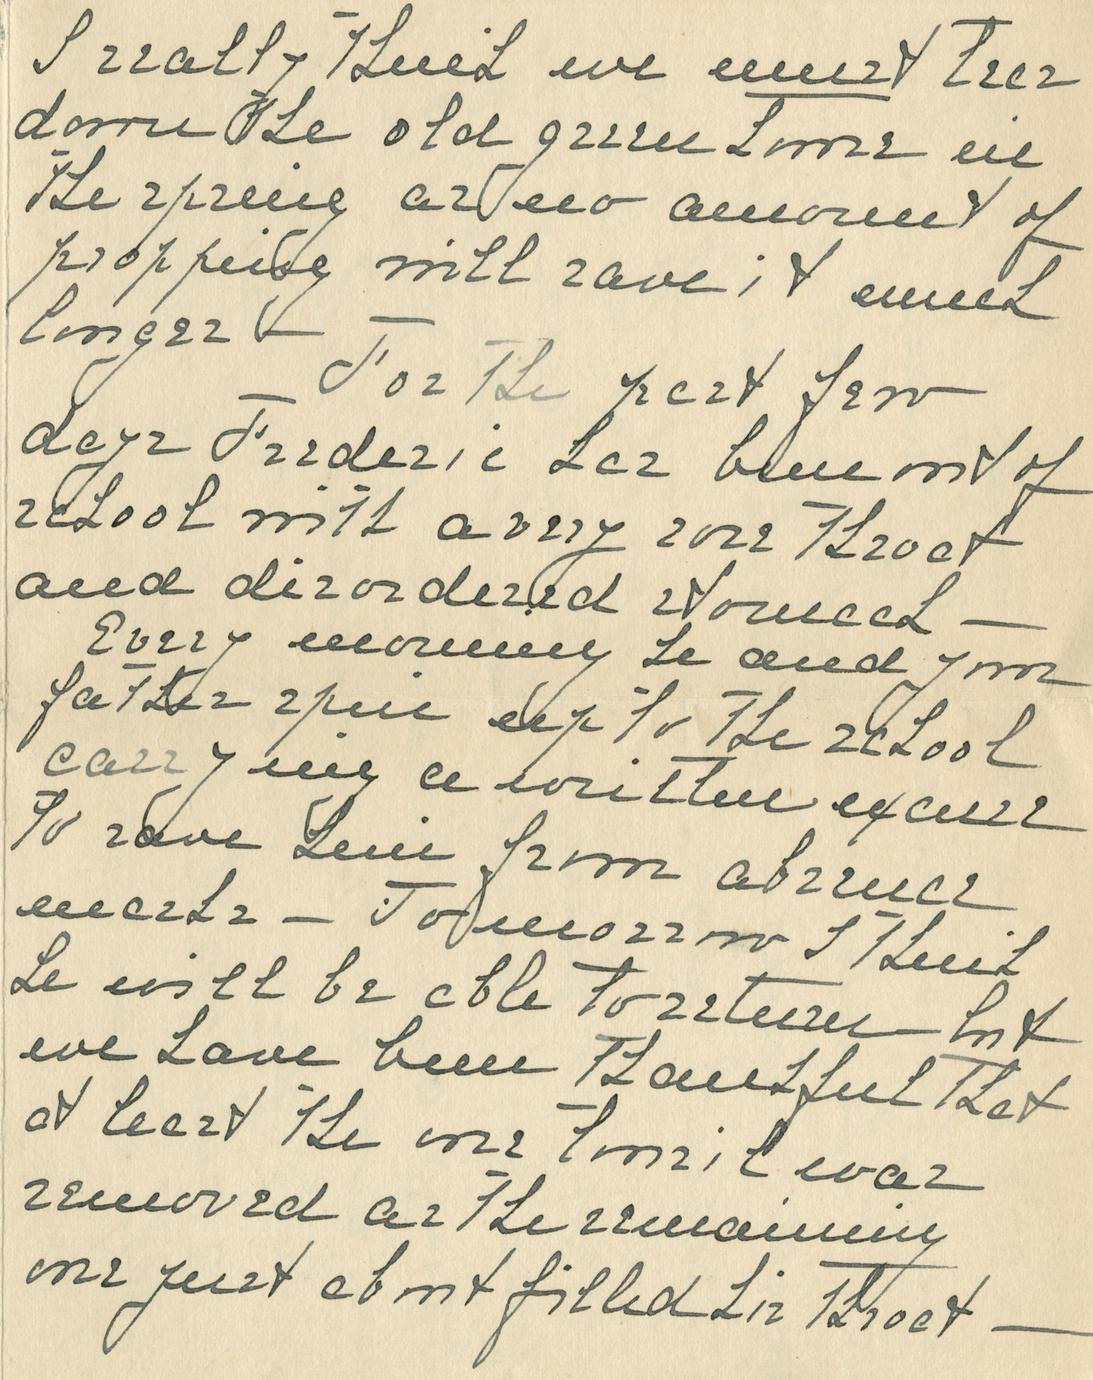 I really think we must tear
down the old green house in
the spring as no amount of
propping will save it much
longer —
For the past few
days Frederic has been out of
school with a very sore throat
and disordered stomach —
Every morning he and your
father spin up to the school
carrying a written excuse
to save him from absence
marks — Tomorrow I think
he will be able to return — but
we have been thankful that
at least the one tonsil was
removed as the remaining
one just about filled his throat —